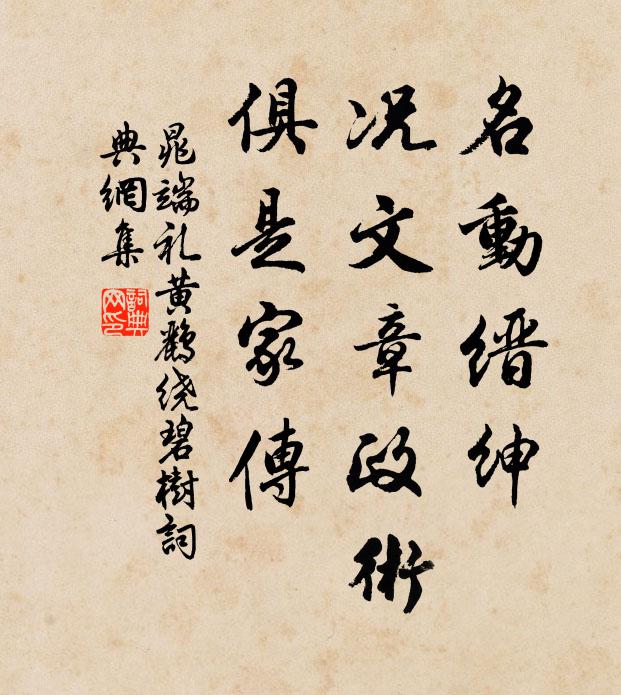 名動缙紳
况文章政術
俱是家傳
晁端礼黄鸝绕碧樹詞
典網集
詞典
网印